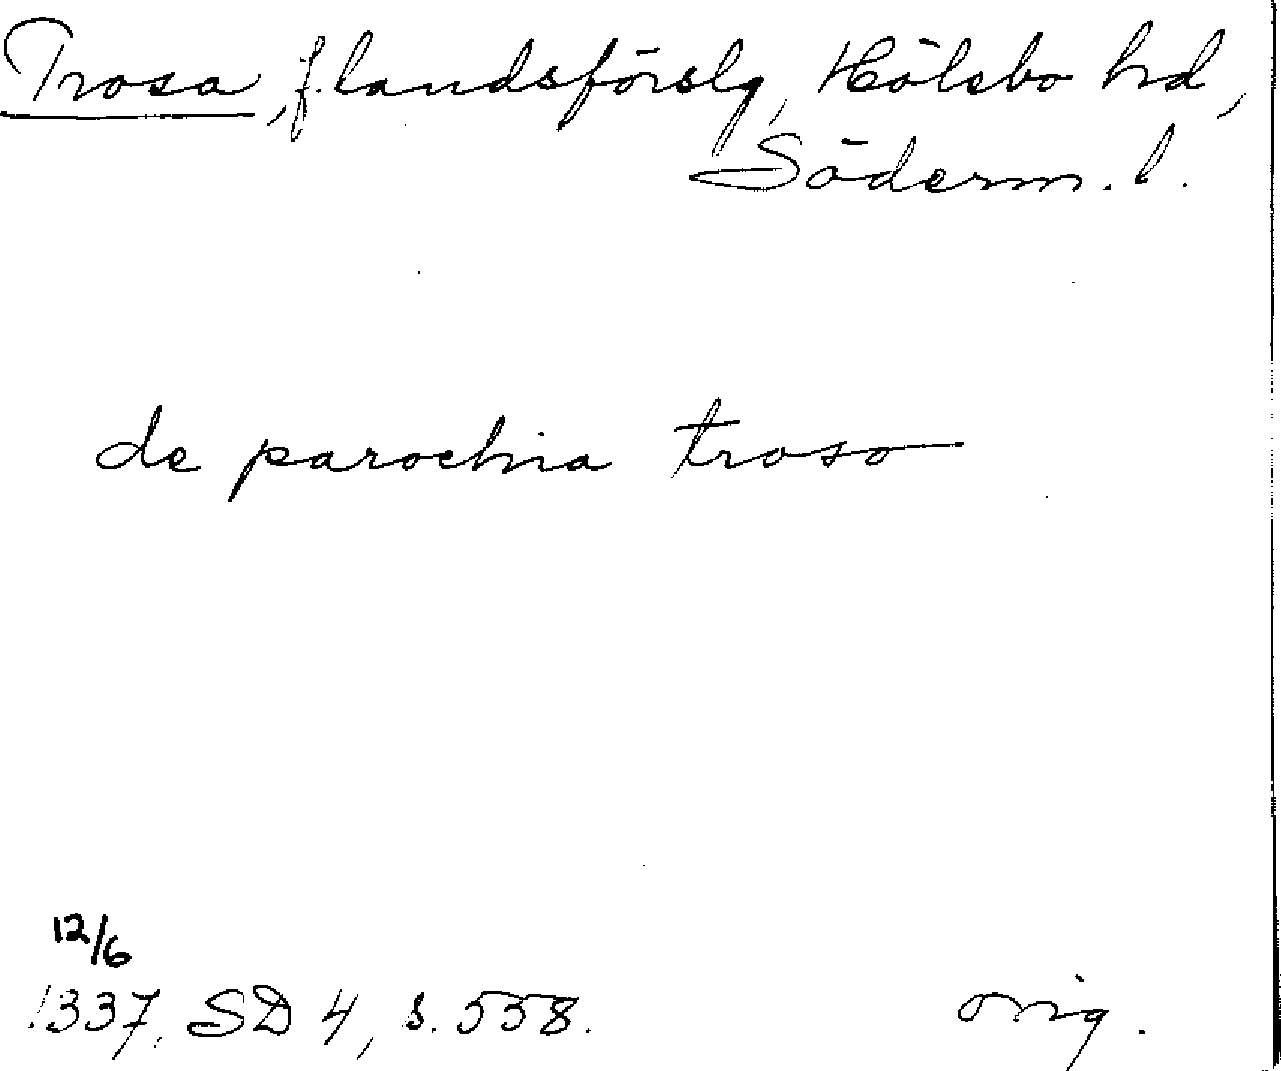 Trosa, f. landsförslg, Hölebo hd,
Söderm. l.
de parochia troso
12/6
1337, SD 4, s. 558.
orig.